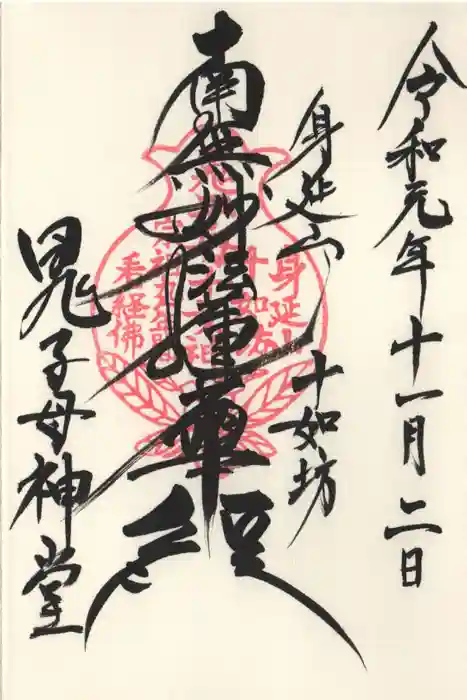 令和元年十一月二日
身延山
十如坊
南無妙法蓮華経
鬼子母神堂